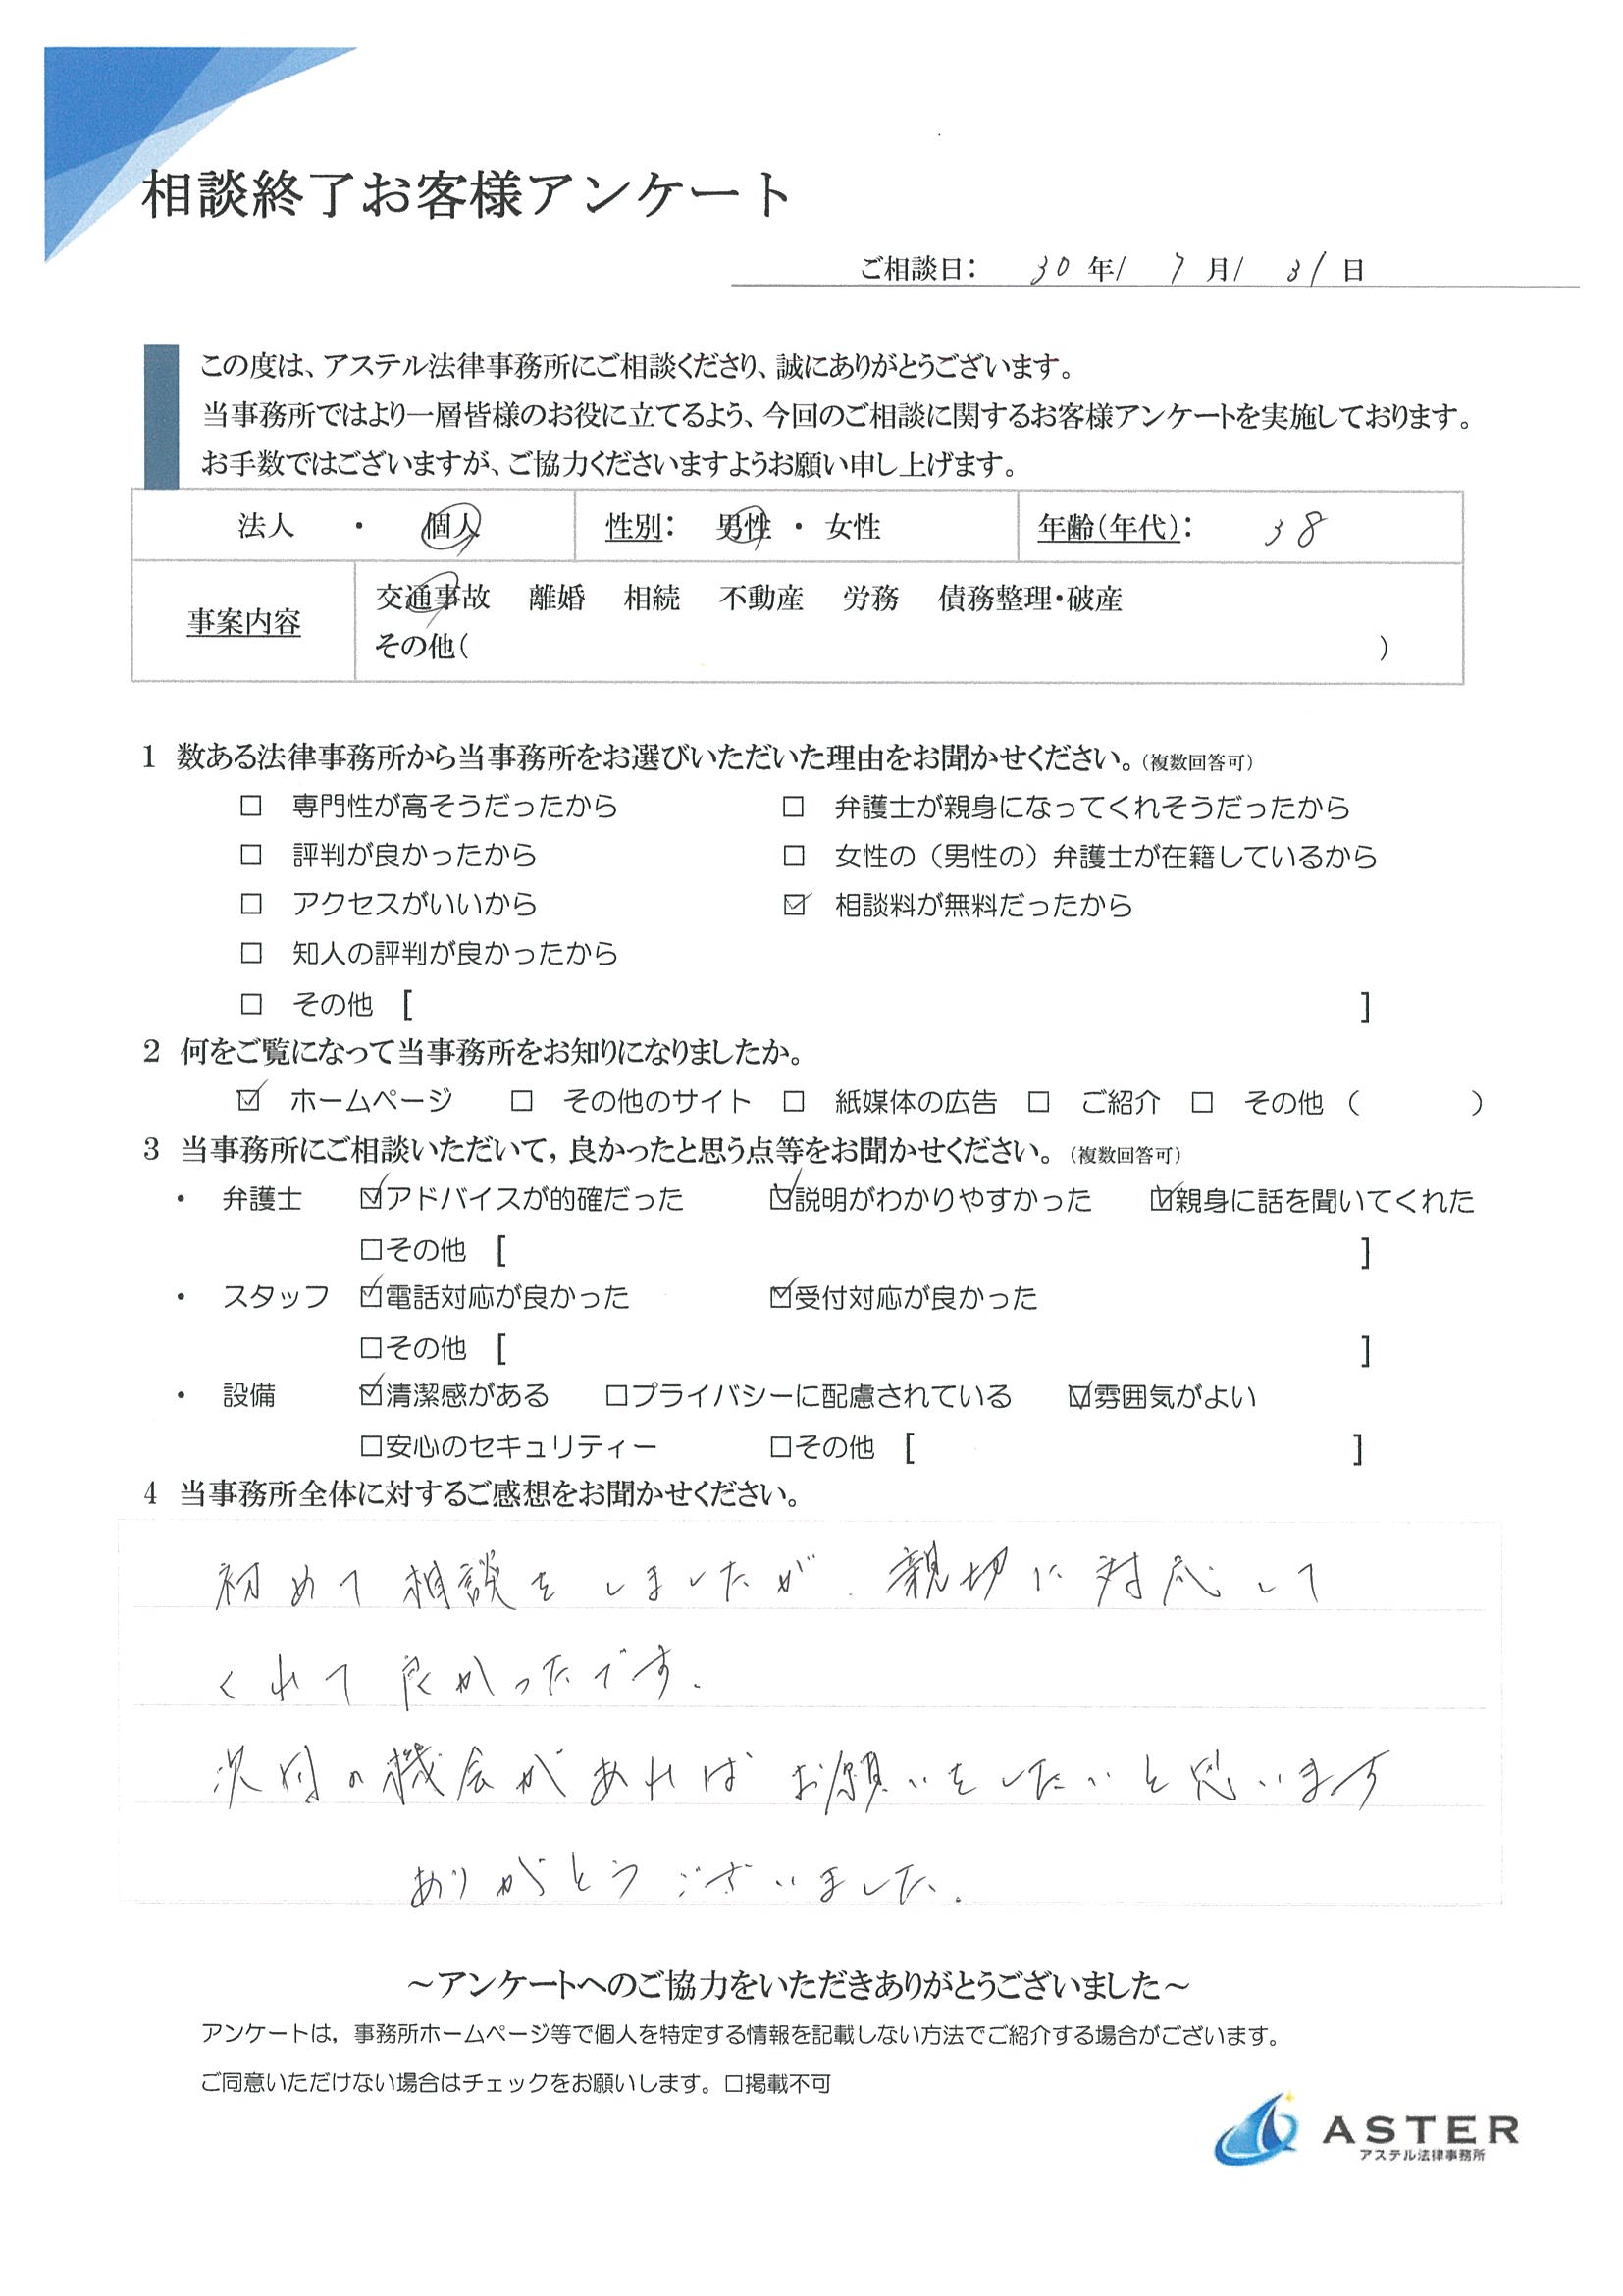 相談終了お客様アンケート
ご相談日： 30 年/ 7 月/ 31 日
この度は、アステル法律事務所にご相談くださり、誠にありがとうございます。
当事務所ではより一層皆様のお役に立てるよう、今回のご相談に関するお客様アンケートを実施しております。
お手数ではございますが、ご協力くださいますようお願い申し上げます。
法人 ・ 個人 性別： 男性 ・ 女性 年齢（年代）： 38
事案内容 交通事故 離婚 相続 不動産 労務 債務整理・破産
その他（ ）
1 数ある法律事務所から当事務所をお選びいただいた理由をお聞かせください。（複数回答可）
□ 専門性が高そうだったから □ 弁護士が親身になってくれそうだったから
□ 評判が良かったから □ 女性の（男性の）弁護士が在籍しているから
□ アクセスがいいから ☑ 相談料が無料だったから
□ 知人の評判が良かったから
□ その他 [ ]
2 何をご覧になって当事務所をお知りになりましたか。
☑ ホームページ □ その他のサイト □ 紙媒体の広告 □ ご紹介 □ その他 （ ）
3 当事務所にご相談いただいて，良かったと思う点等をお聞かせください。（複数回答可）
・ 弁護士 ☑アドバイスが的確だった ☑説明がわかりやすかった ☑親身に話を聞いてくれた
□その他 [ ]
・ スタッフ ☑電話対応が良かった ☑受付対応が良かった
□その他 [ ]
・ 設備 ☑清潔感がある □プライバシーに配慮されている ☑雰囲気がよい
□安心のセキュリティー □その他 [ ]
4 当事務所全体に対するご感想をお聞かせください。
初めて相談をしましたが、親切に対応して
くれて良かったです。
次回の機会があればお願いをしたいと思います
ありがとうございました。
～アンケートへのご協力をいただきありがとうございました～
アンケートは，事務所ホームページ等で個人を特定する情報を記載しない方法でご紹介する場合がございます。
ご同意いただけない場合はチェックをお願いします。□掲載不可
ASTER
アステル法律事務所